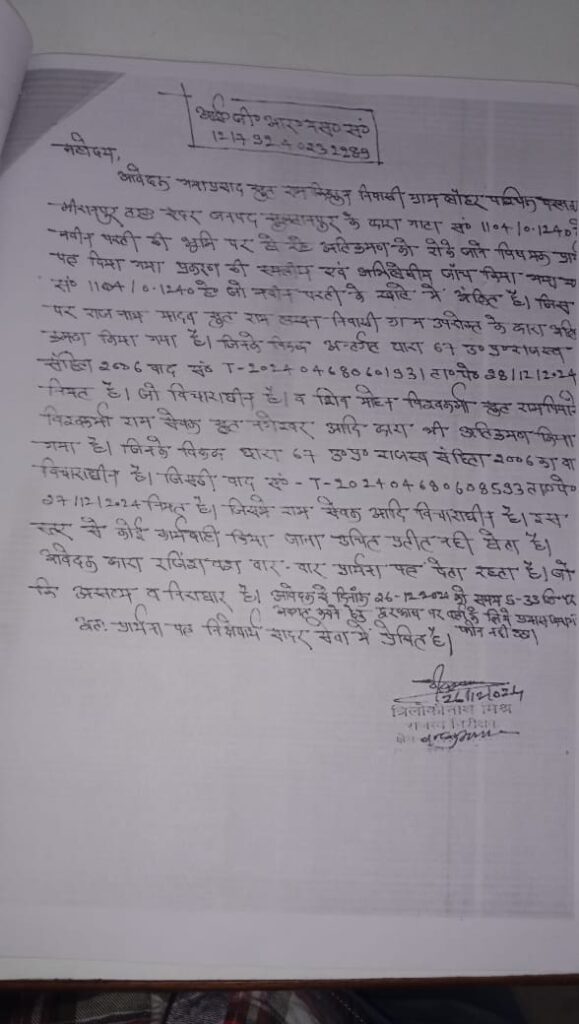 आई०जी०आर०एस० सं०
12179240232989
महोदय,
आवेदक सुत राम निवासी ग्राम लोहर पश्चिम
मीरानपुर तह० सदर जनपद सुल्तानपुर के द्वारा गाटा सं० 1104/0.1240 हे०
नवीन परती की भूमि पर हो रहे अतिक्रमण को रोके जाने विषयक
पत्र दिया गया प्रकरण की स्थलीय एवं अभिलेखीय जाँच किया गया
सं० 1104/0.1240 हे० जो नवीन परती के खाते में अंकित है। जिस
पर राज नाथ यादव सुत राम लखन निवासी ग्राम उपरोक्त के द्वारा अति
क्रमण किया गया है। जिनके विरुद्ध अन्तर्गत धारा 67 उ०प्र० राजस्व
संहिता 2006 वाद सं० T-202404680601931 ता०पे० 28/12/2024
नियत है। जो विचाराधीन है। व शिव मोहन विश्वकर्मा सुत
विश्वकर्मा राम सेवक सुत आदि द्वारा भी अतिक्रमण किया
गया है। जिनके विरुद्ध धारा 67 उ०प्र० राजस्व संहिता 2006 का वा
विचाराधीन है। जिसकी वाद सं० - T-202404680608593 ता०पे०
27/12/2024 नियत है। जिसमे राम सेवक आदि विचाराधीन है। इस
स्तर से कोई कार्यवाही किया जाना उचित प्रतीत नही होता है।
आवेदक द्वारा रंजिश वश बार-बार प्रार्थना पत्र देता रहता है। जो
कि असत्य व निराधार है। आवेदक से दिनांक 26-12-2024 को समय 5-33
अवगत कराने हेतु दूरभाष पर वार्ता के लिये प्रयास किया गया
फोन नही उठा।
अतः प्रार्थना पत्र निक्षेपार्थ सादर सेवा में प्रेषित है।
26/12/2024
त्रिलोकीनाथ मिश्र
राजस्व निरीक्षक
क्षेत्र